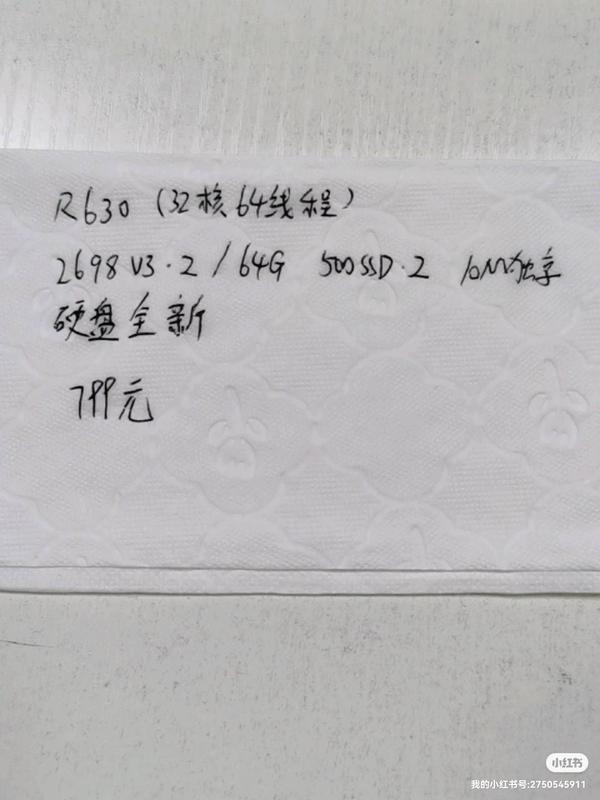 R630 (32核64线程)
2698 V3·2 / 64G 500SSD·2 10M独享
硬盘全新
799元
小红书
我的小红书号:2750545911